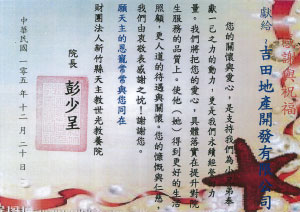 感謝與祝福
獻給 吉田地產開發有限公司
您的關懷與愛心，是支持我們為小弟弟奉
獻一己之力的動力，更是我們永續經營的力
量。我們將把您的愛心，具體落實在提升對院
生服務的品質上。使他（她）得到更好的生活
照顧，更人道的待遇與關懷。您的慷慨與仁慈，
我們由衷敬表感謝之忱！謝謝您。
願天主的恩寵常常與您同在
財團法人新竹縣天主教世光教養院
院長 彭少呈
中華民國一〇五年十二月二十日